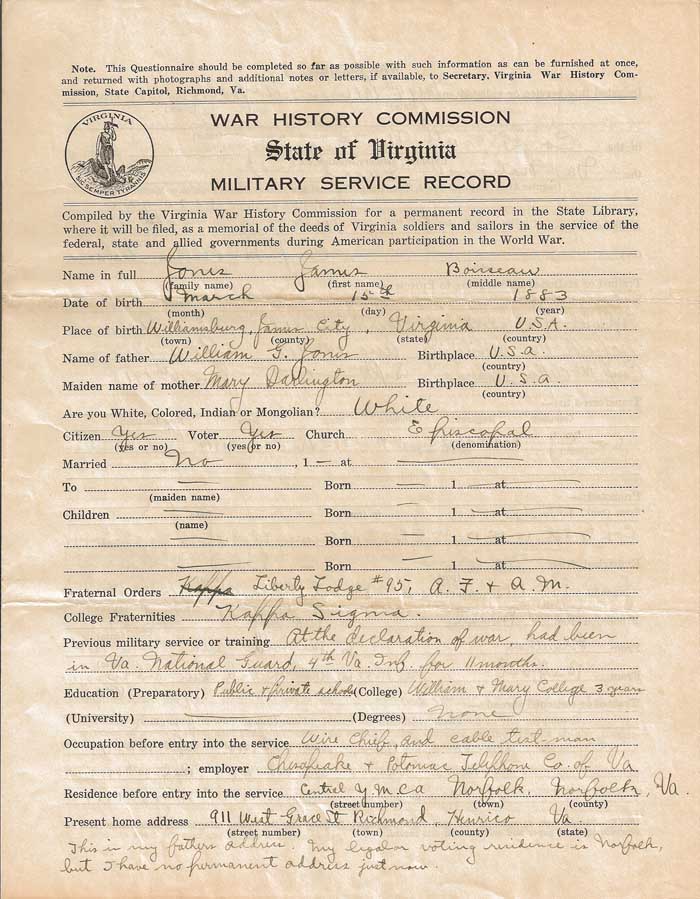 Note. This Questionnaire should be completed so far as possible with such information as can be furnished at once,
and returned with photographs and additional notes or letters, if available, to Secretary, Virginia War History Com-
mission, State Capitol, Richmond, Va.
VIRGINIA
SIC SEMPER TYRANNIS
WAR HISTORY COMMISSION
State of Virginia
MILITARY SERVICE RECORD
Compiled by the Virginia War History Commission for a permanent record in the State Library,
where it will be filed, as a memorial of the deeds of Virginia soldiers and sailors in the service of the
federal, state and allied governments during American participation in the World War.
Name in full Jones James Boisseau
(family name) (first name) (middle name)
Date of birth March 15th 1883
(month) (day) (year)
Place of birth Williamsburg, James City, Virginia U.S.A.
(town) (county) (state) (country)
Name of father William G. Jones Birthplace U.S.a.
(country)
Maiden name of mother Mary Darlington Birthplace U.S.a.
(country)
Are you White, Colored, Indian or Mongolian? White
Citizen Yes Voter Yes Church Episcopal
(yes or no) (yes or no) (denomination)
Married No, 1 — at
To — Born — 1 — at —
(maiden name)
Children — Born — 1 — at —
(name)
— Born — 1 — at —
— Born — 1 — at —
Fraternal Orders Kappa Liberty Lodge #95, A. F. & A. M.
College Fraternities Kappa Sigma.
Previous military service or training At the declaration of war, had been
in Va. National Guard, 4th Va. Inf. for 11 months.
Education (Preparatory) Public & Private schools (College) William & Mary College 3 years
(University) — (Degrees) None
Occupation before entry into the service Wire Chief, and cable test-man
; employer Chesapeake & Potomac Telephone Co. of Va
Residence before entry into the service Central Y M C A Norfolk, Norfolk, Va.
(street number) (town) (county)
Present home address 911 West Grace St Richmond, Henrico Va
(street number) (town) (county) (state)
This is my fathers address. My legal or voting residence is Norfolk,
but I have no permanent address just now.